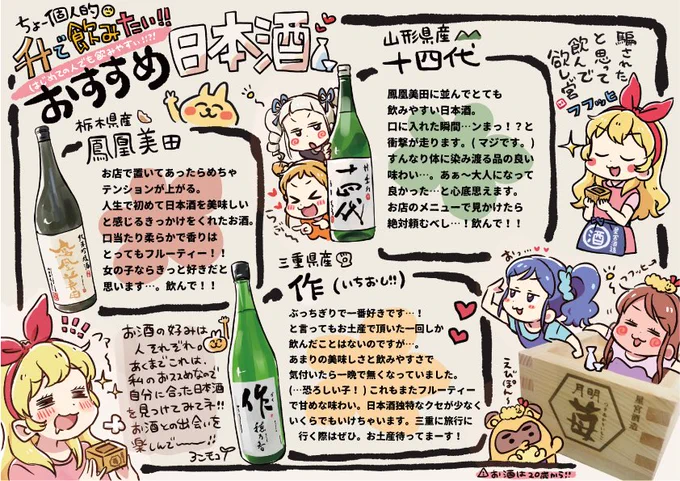 ちょー個人的
升で飲みたい!!
はじめての人でも飲みやすい!!?
おすすめ日本酒
栃木県産
鳳凰美田
お店で置いてあったらめちゃ
テンションが上がる。
人生で初めて日本酒を美味しい
と感じるきっかけをくれたお酒。
口当たり柔らかで香りは
とってもフルーティー!!
女の子ならきっと好きだと
思います…。飲んで!!
山形県産
十四代
鳳凰美田に並んでとても
飲みやすい日本酒。
口に入れた瞬間…ンまっ!?と
衝撃が走ります。(マジです。)
すんなり体に染み渡る品の良い
味わい…。あぁ〜大人になって
良かった…と心底思えます。
お店のメニューで見かけたら
絶対頼むべし…!飲んで!!
十四代
騙された
と思って
飲んで
欲しい宮
フフッヒ
酒
三重県産
作(いちおし!!)
ぶっちぎりで一番好きです…!
と言ってもお土産で頂いた一回しか
飲んだことはないのですが…。
あまりの美味しさと飲みやすさで
気付いたら一晩で無くなっていました。
(…恐ろしい子!)これもまたフルーティー
で甘めな味わい。日本酒独特なクセが少なく
いくらでもいけちゃいます。三重に旅行に
行く際はぜひ。お土産待ってまーす!
作
穂乃智
お酒の好みは
人それぞれ。
あくまでこれは、
私のおススメなので
自分に合った日本酒
を見つけてみて下!!
お酒との出会いを
楽しんで〜〜!!
えびぽん〜
フフッヒ
明月
苺
星宮酒造
⚠お酒は20歳から!!